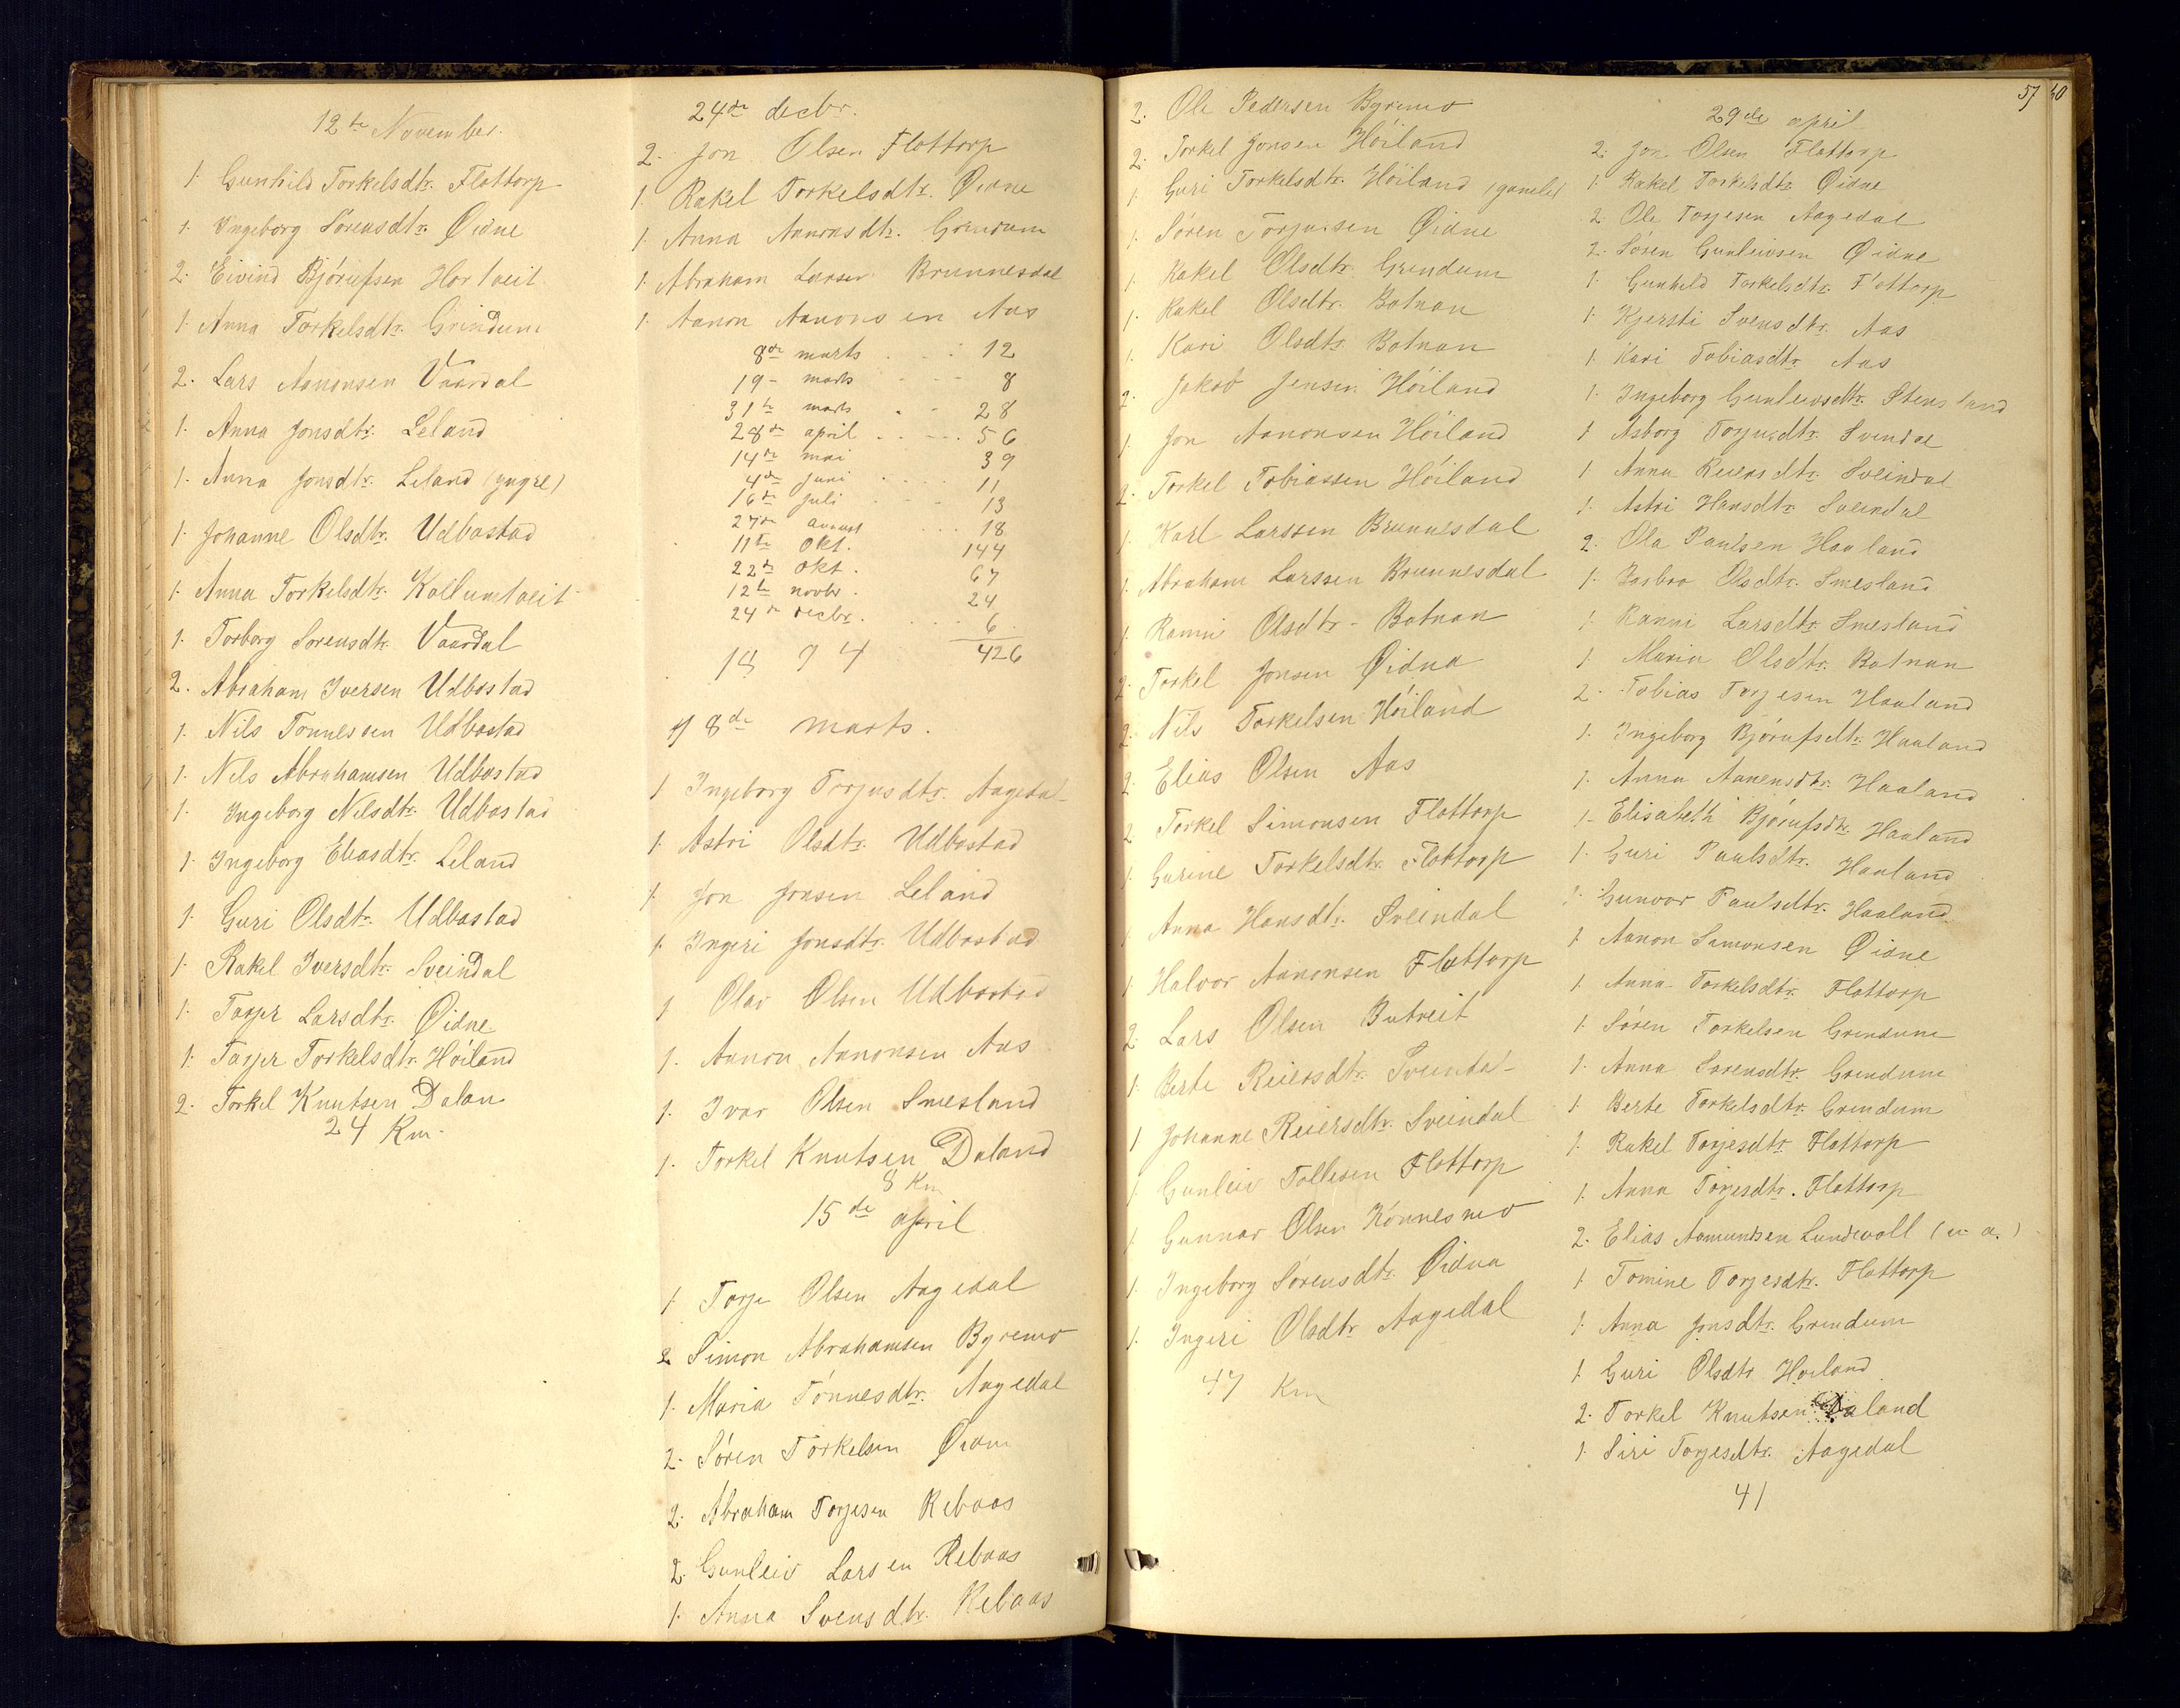 12te November.
1. Gunhild Torkelsdtr. Flottorp
1. Ingeborg Sörensdtr. Øidne
2. Eivind Bjórufsen Hortveit
1. Anna Torkelsdtr. Grindum
2. Lars Aanonsen Vaardal
1. Anna Jonsdtr. Leland
1. Anna Jonsdtr. Leland (yngre)
1. Johanne Olsdtr. Udbostad
1. Anna Torkelsdtr. Kollumtveit
1. Torborg Sorensdtr. Vaardal
2. Abraham Iversen Udbostad
1. Nils Tonnessen Udbostad
1. Nils Abrahamsen Udbostad
1. Ingeborg Nilsdtr. Udbostad
1. Ingeborg Eliasdtr. Leland
1. Guri Olsdtr. Udbostad
1. Rakel Iversdtr. Sveindal
1. Torjer Larsdtr. Øidne
1. Torjer Torkelsdtr. Höiland
2. Torkel Knutsen Dalan
24 Km.
24de decbr.
2. Jon Olsen Flottorp
1. Rakel Torkelsdtr. Øidne
1. Anna Aanonsdtr. Grindum
1. Abraham Larsen Brunnesdal
1. Aanon Aanonsen Aas
8de marts . . . 12
19 - marts . . . 8
31te marts . . 28
28de april . . . . 56
14de mai 39
4de juni . . . . 11
16de juli . . . 13
27de august . . . 18
11te Okt. 144
22de Okt. 67
12te novbr. 24
24de decbr. . . . 6
1894 426
8de marts.
1 Ingeborg Torjusdtr. Aagedal
1. Astri Olsdtr. Udbostad
1. Jon Jonsen Leland
1. Ingeri Jonsdtr. Udbostad
1 Olav Olsen Udbostad
1. Aanon Aanonsen Aas
1. Ivar Olsen Smesland
1. Torkel Knutsen Daland
8 Km
15de april
1. Torje Olsen Aagedal
2 Simon Abrahamsen Byremo
1. Maria Tönnesdtr. Aagedal
2. Sören Torkelsen Øidne
2. Abraham Torjesen Rebaas
2. Gunleiv Larsen Rebaas
1. Anna Svensdtr. Rebaas
57 60
2. Ole Pedersen Byremo
2. Torkel Jonsen Höiland
1. Guri Torkelsdtr. Höiland (gamle)
1. Sören Torjussen Øidne
1 Rakel Olsdtr. Grindum
1. Rakel Olsdtr. Botnan
1. Kari Olsdtr. Botnan
2. Jakob Jensen Höiland
1 Jon Aanonsen Höiland
2. Torkel Tobiassen Höiland
1. Karl Larssen Brunnesdal
1. Abraham Larssen Brunnesdal
1 Ranni Olsdtr. Botnan
2. Torkel Jonsen Øidna
2. Nils Torkelsen Höiland
2. Elias Olsen Aas
2 Torkel Simonsen Flottorp
1. Gurine Torkelsdtr. Flottorp
1 Anna Hansdtr. Sveindal
1 Halvor Aanonsen Flottorp
2 Lars Olsen Butveit
1 Berte Reiersdtr. Sveindal
1 Johanne Reiersdtr. Sveindal
1 Gunleiv Tollesen Flottorp
1. Gunnar Olsen Könnesmo
1. Ingeborg Sörensdtr. Øidna
1. Ingeri Olsdtr. Aagedal
47 Km
29de april
2. Jon Olsen Flottorp
1. Rakel Torkelsdtr. Øidne
2. Ole Torjesen Aagedal
2. Sören Gunleivsen Øidne
1. Gunhild Torkelsdtr. Flottorp
1. Kjersti Svensdtr. Aas
1. Kari Tobiasdtr. Aas
1. Ingeborg Gunleivsdtr. Stensland
1 Asborg Torjusdtr. Svendal
1 Anna Reiersdtr. Sveindal
1. Astri Hansdtr. Sveindal
2. Ola Paulsen Haaland
1. Barbro Olsdtr. Smesland
1. Ranni Larsdtr. Smesland
1. Maria Olsdtr. Botnan
2. Tobias Torjesen Haaland
1. Ingeborg Bjórufsdtr. Haaland
1. Anna Aanensdtr. Haaland
1. Elisabeth Bjórufsdtr. Haaland
1. Guri Paulsdtr. Haaland
1. Gunvor Paulsdtr. Haaland
1 Aanon Simonsen Øidne
1. Anna Torkelsdtr. Flottorp
1. Sören Torkelsen Grendum
1. Anna Sorensdtr. Grendum
1 Berte Torkelsdtr. Grendum
1. Rakel Torjesdtr. Flottorp
1. Anna Torjesdtr. Flottorp
2. Elias Aamundsen Lundevoll
1 Tomine Torjesdtr. Flottorp
1. Anna Jonsdtr. Grendum
1. Guri Olsdtr. Hoiland
2. Torkel Knutsen Daland
1. Siri Torjesdtr. Aagedal
41